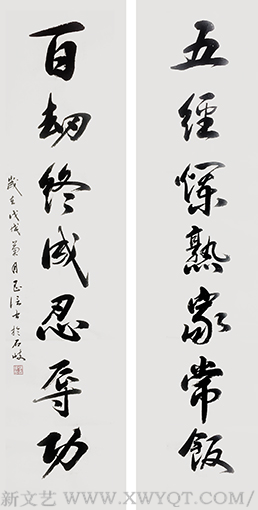 五經爛熟家常飯
百劫終成忍辱功
歲在戊戌月於石岐
新文艺 / WWW.XWYQT.COM